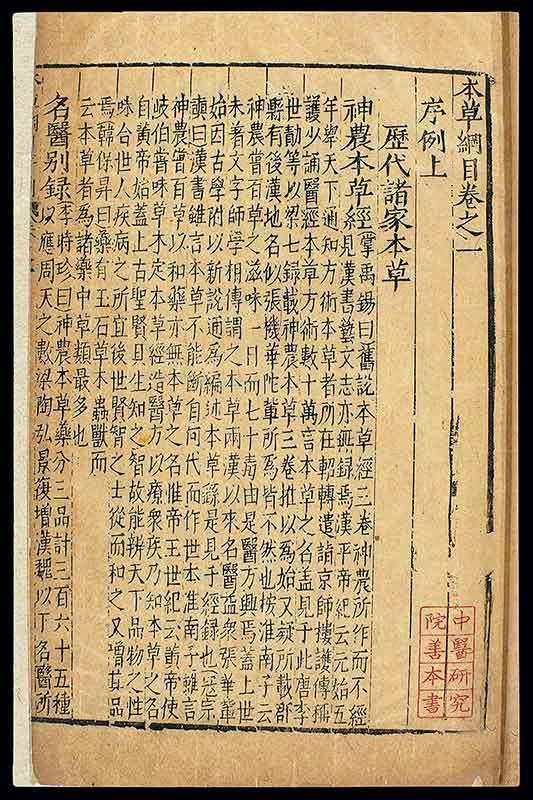 本草綱目卷之一
序例上
歷代諸家本草
神農本草經掌禹錫曰舊說本草經三卷神農所作而不經
見漢書藝文志亦無録焉漢平帝紀云元始五
年舉天下通知方術本草者所在軺轉遣詣京師樓護傳稱
護少誦醫經本草方術數十萬言本草之名蓋見于此唐李
世勣等以梁七録載神農本草三卷推以為始又疑所載郡
縣有後漢地名似張機華陀輩所為皆不然也按淮南子云
神農嘗百草之滋味一日而七十毒由是醫方興焉蓋上世
未著文字師學相傳謂之本草兩漢以來名醫益衆張華輩
始因古學附以新說通為編述本草繇是見于經録也宼宗
奭曰漢書雖言本草不能斷自何代而作世本淮南子雖言
神農嘗百草以和藥亦無本草之名惟帝王世紀云黄帝使
岐伯嘗味草木定本草經造醫方以療衆疾乃知本草之名
自黄帝始蓋上古聖賢具生知之智故能辨天下品物之性
味合世人疾病之所宜後世賢智之士從而和之又增其品
焉韓保昇曰藥有玉石草木蟲獸而
云本草者為諸藥中草類最多也
名醫别録李時珍曰神農本草藥分三品計三百六十五種
以應周天之數梁陶弘景復增漢魏以下名醫所
中醫研究
院善本書